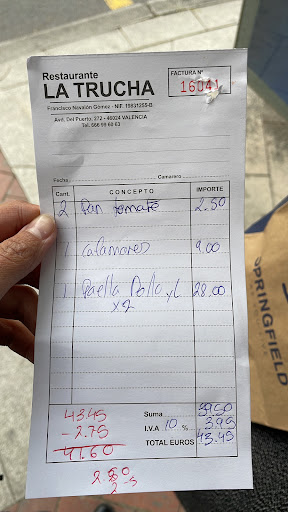 Restaurante
LA TRUCHA
FACTURA Nº
16041
Francisco Navalón Gómez - NIF. 19831255-B
Avd. Del Puerto, 272 - 46024 VALENCIA
Fecha
Camarero
Cant. CONCEPTO IMPORTE
2 Pan tomate 2.50
1 Calamares 9.00
1 Paella Pollo y 28.00
x2
Suma 39.50
I.V.A 10 % 3.95
TOTAL EUROS 43.45
43.45
- 2.75
41.60
2.50
SPRINGFIELD